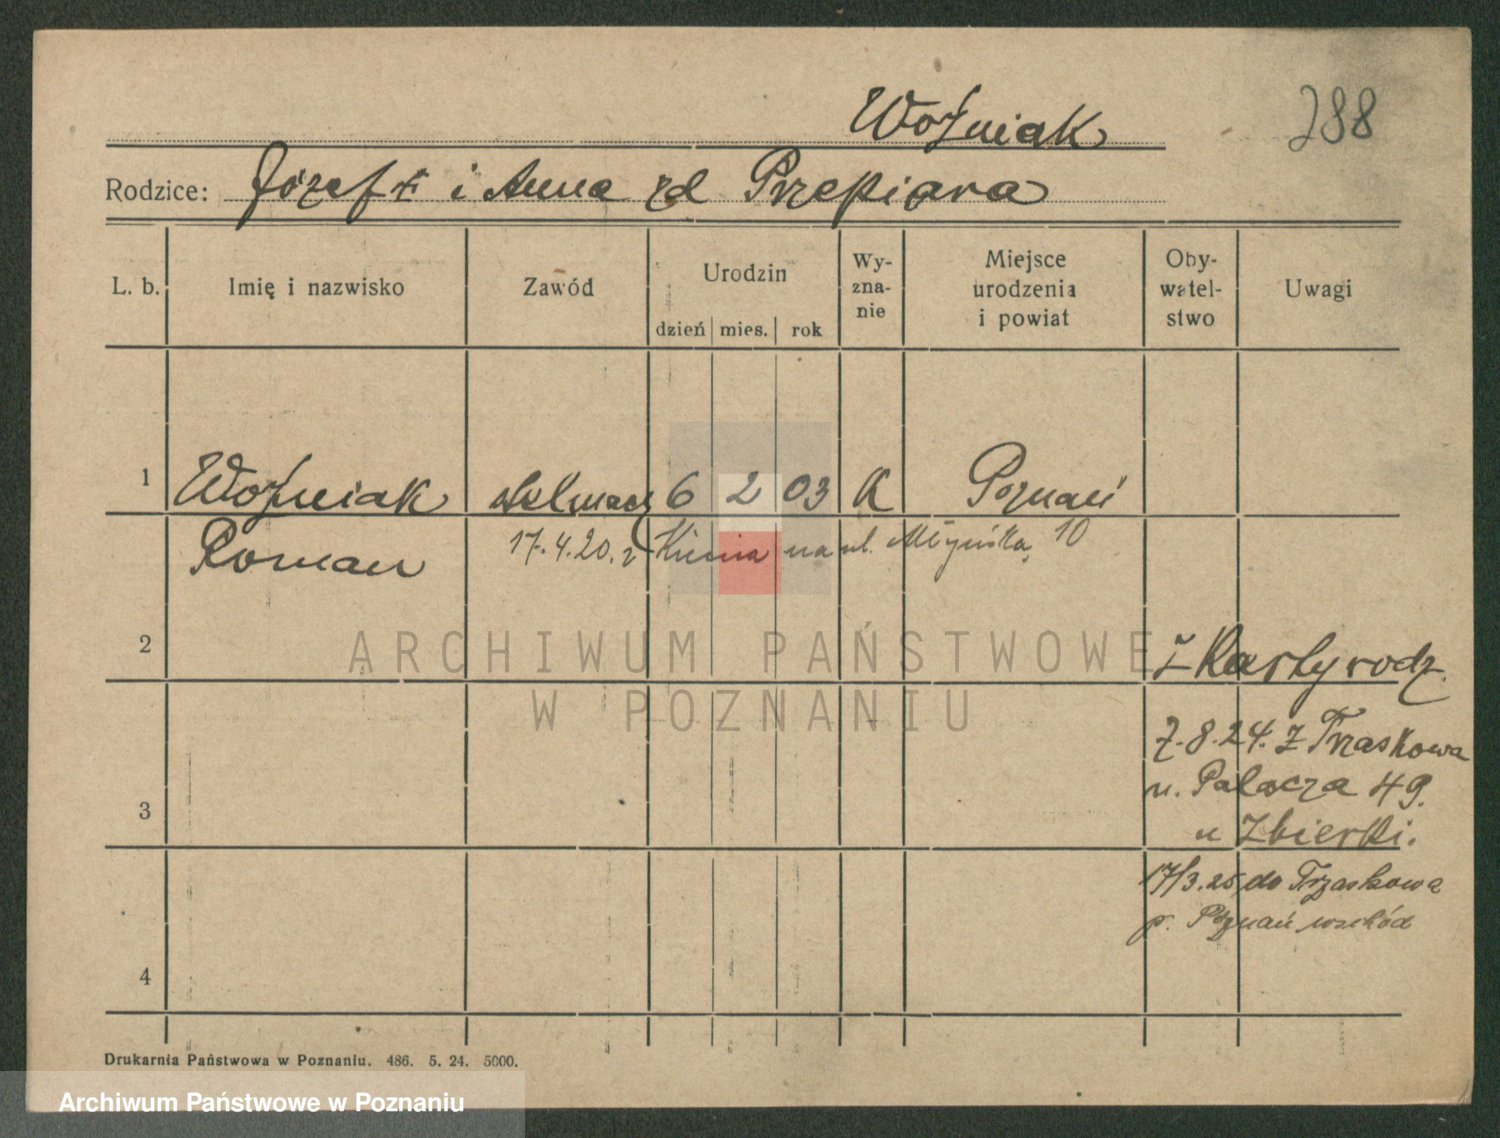 Woźniak
288
Rodzice: Józef i Anna zd Przepiara
L. b. Imię i nazwisko Zawód Urodzin dzień mies. rok Wy-zna-nie Miejsce urodzenia i powiat Oby-watel-stwo Uwagi
1 Woźniak stelmach 6 2 03 K Poznań
Roman 17.4.20. z na ul. Młyńska 10
2 z Karty rodz.
7.8.24. z Trzaskowa
u. Palacza 49.
3 u Zbierski.
17/3.25, do Trzaskowa
p. Poznań wschód
4
Drukarnia Państwowa w Poznaniu. 486. 5. 24. 5000.
ARCHIWUM PAŃSTWOWE
W POZNANIU
Archiwum Państwowe w Poznaniu